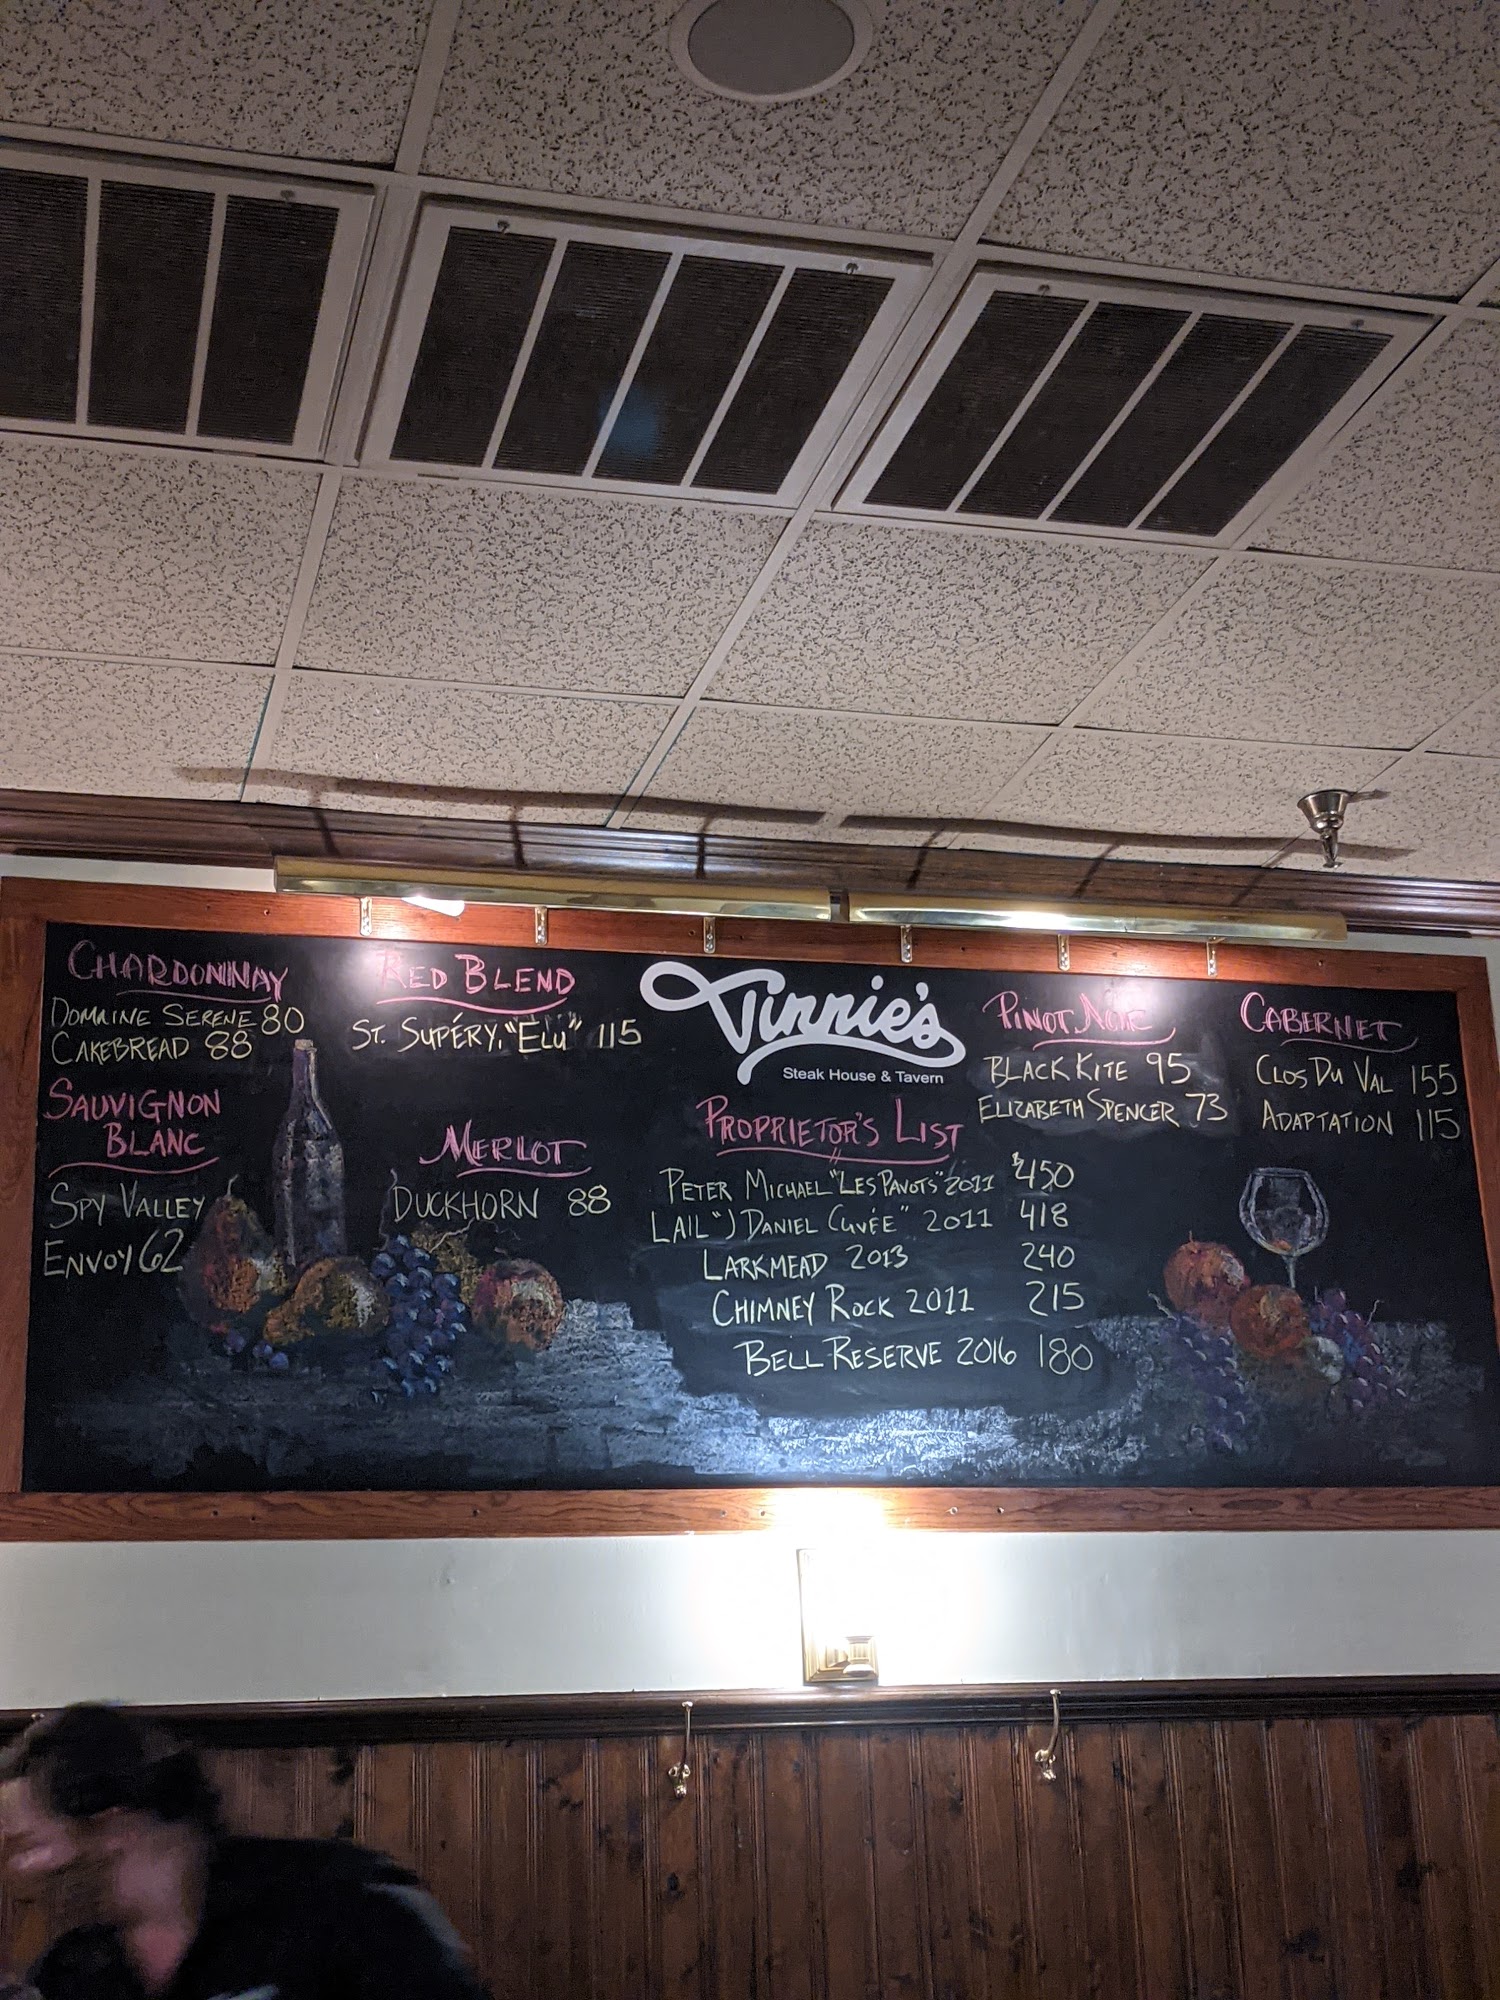 CHARDONNAY
DOMAINE SERENE 80
CAKEBREAD 88
SAUVIGNON
BLANC
SPY VALLEY
ENVOY 62
RED BLEND
ST. SUPÉRY, "ÉLU" 115
MERLOT
DUCKHORN 88
Vinnie's
Steak House & Tavern
PROPRIETOR'S LIST
PETER MICHAEL "LES PAVOTS" 2011 $450
LAIL "J DANIEL CUVÉE" 2011 418
LARKMEAD 2013 240
CHIMNEY ROCK 2011 215
BELL RESERVE 2016 180
PINOT NOIR
BLACK KITE 95
ELIZABETH SPENCER 73
CABERNET
CLOS DU VAL 155
ADAPTATION 115